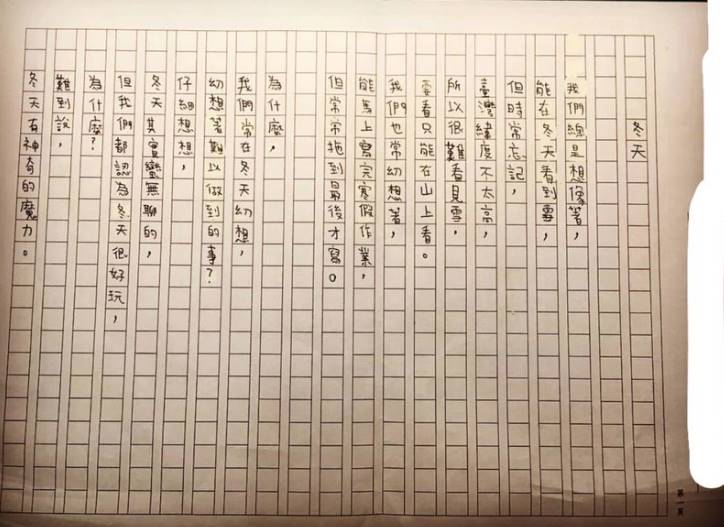 冬天
我們總是想像著，
能在冬天看到雪，
但時常忘記，
臺灣緯度不太高，
所以很難看見雪，
要看只能在山上看。
我們也常幻想著，
能馬上寫完寒假作業，
但常常拖到最後才寫。
為什麼，
我們常在冬天幻想，
幻想著難以做到的事？
仔細想想，
冬天其實蠻無聊的，
但我們都認為冬天很好玩，
為什麼？
難到說，
冬天有神奇的魔力。
第一頁